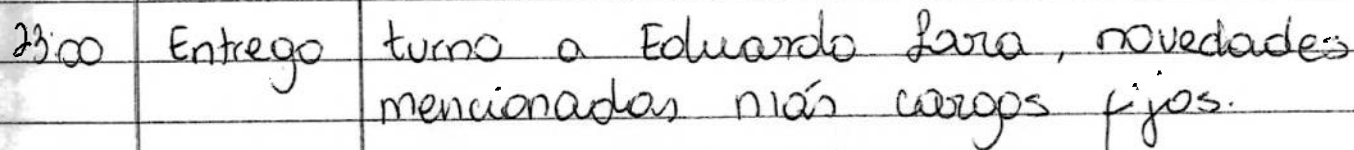 23:00 Entrego turno a Eduardo Lara, novedades
mencionadas más cargos fijos.